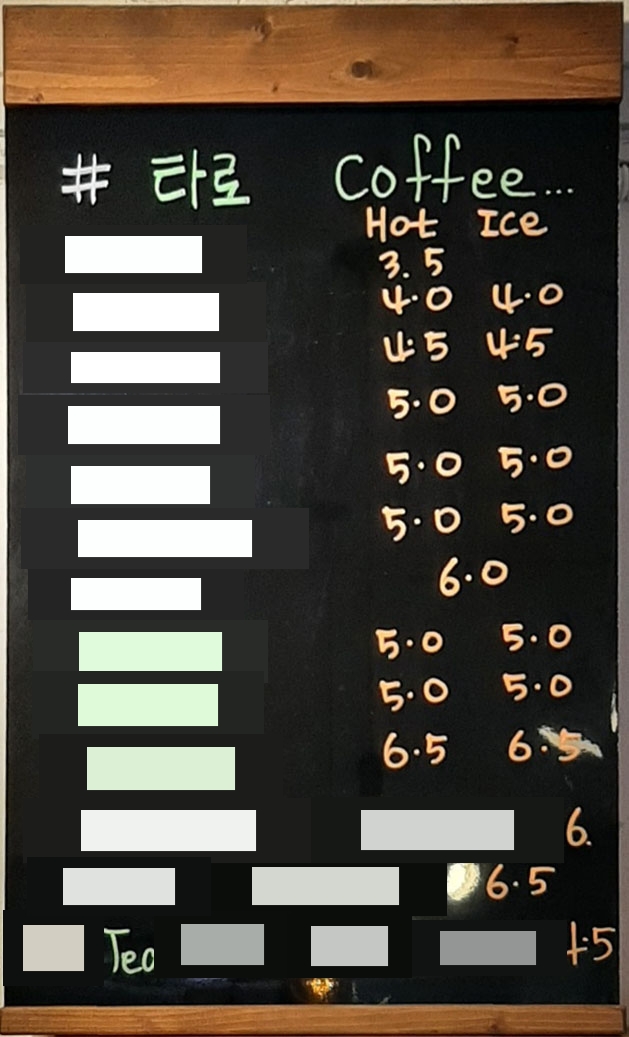 # 타로 Coffee...
Hot Ice
3.5
4.0 4.0
4.5 4.5
5.0 5.0
5.0 5.0
5.0 5.0
6.0
5.0 5.0
5.0 5.0
6.5 6.5
6.
6.5
Tea